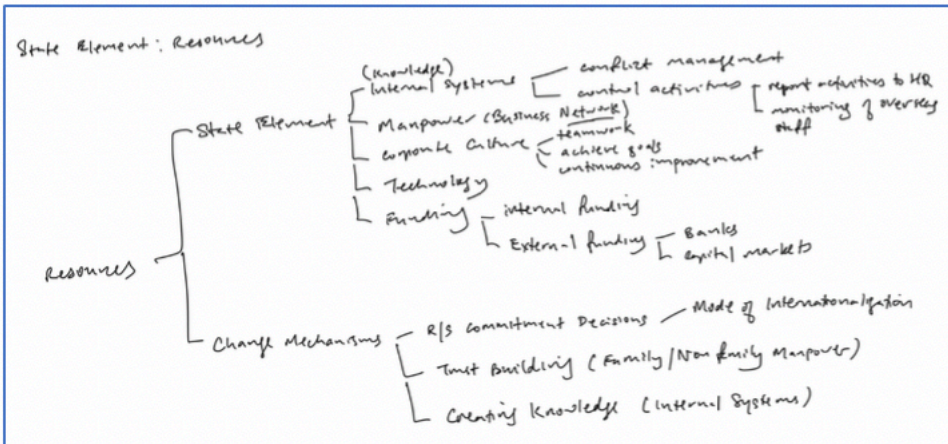 State Element: Resources
State Element
(Knowledge)
Internal Systems
conflict management
control activities
report activities to HR
monitoring of overseas
staff
Manpower (Business Network)
Corporate Culture
teamwork
achieve goals
continuous improvement
Technology
Funding
internal funding
External funding
Banks
capital markets
Resources
Change Mechanisms
R/S Commitment Decisions
Mode of Internationalization
Trust Building (Family/Non family Manpower)
Creating Knowledge (Internal Systems)